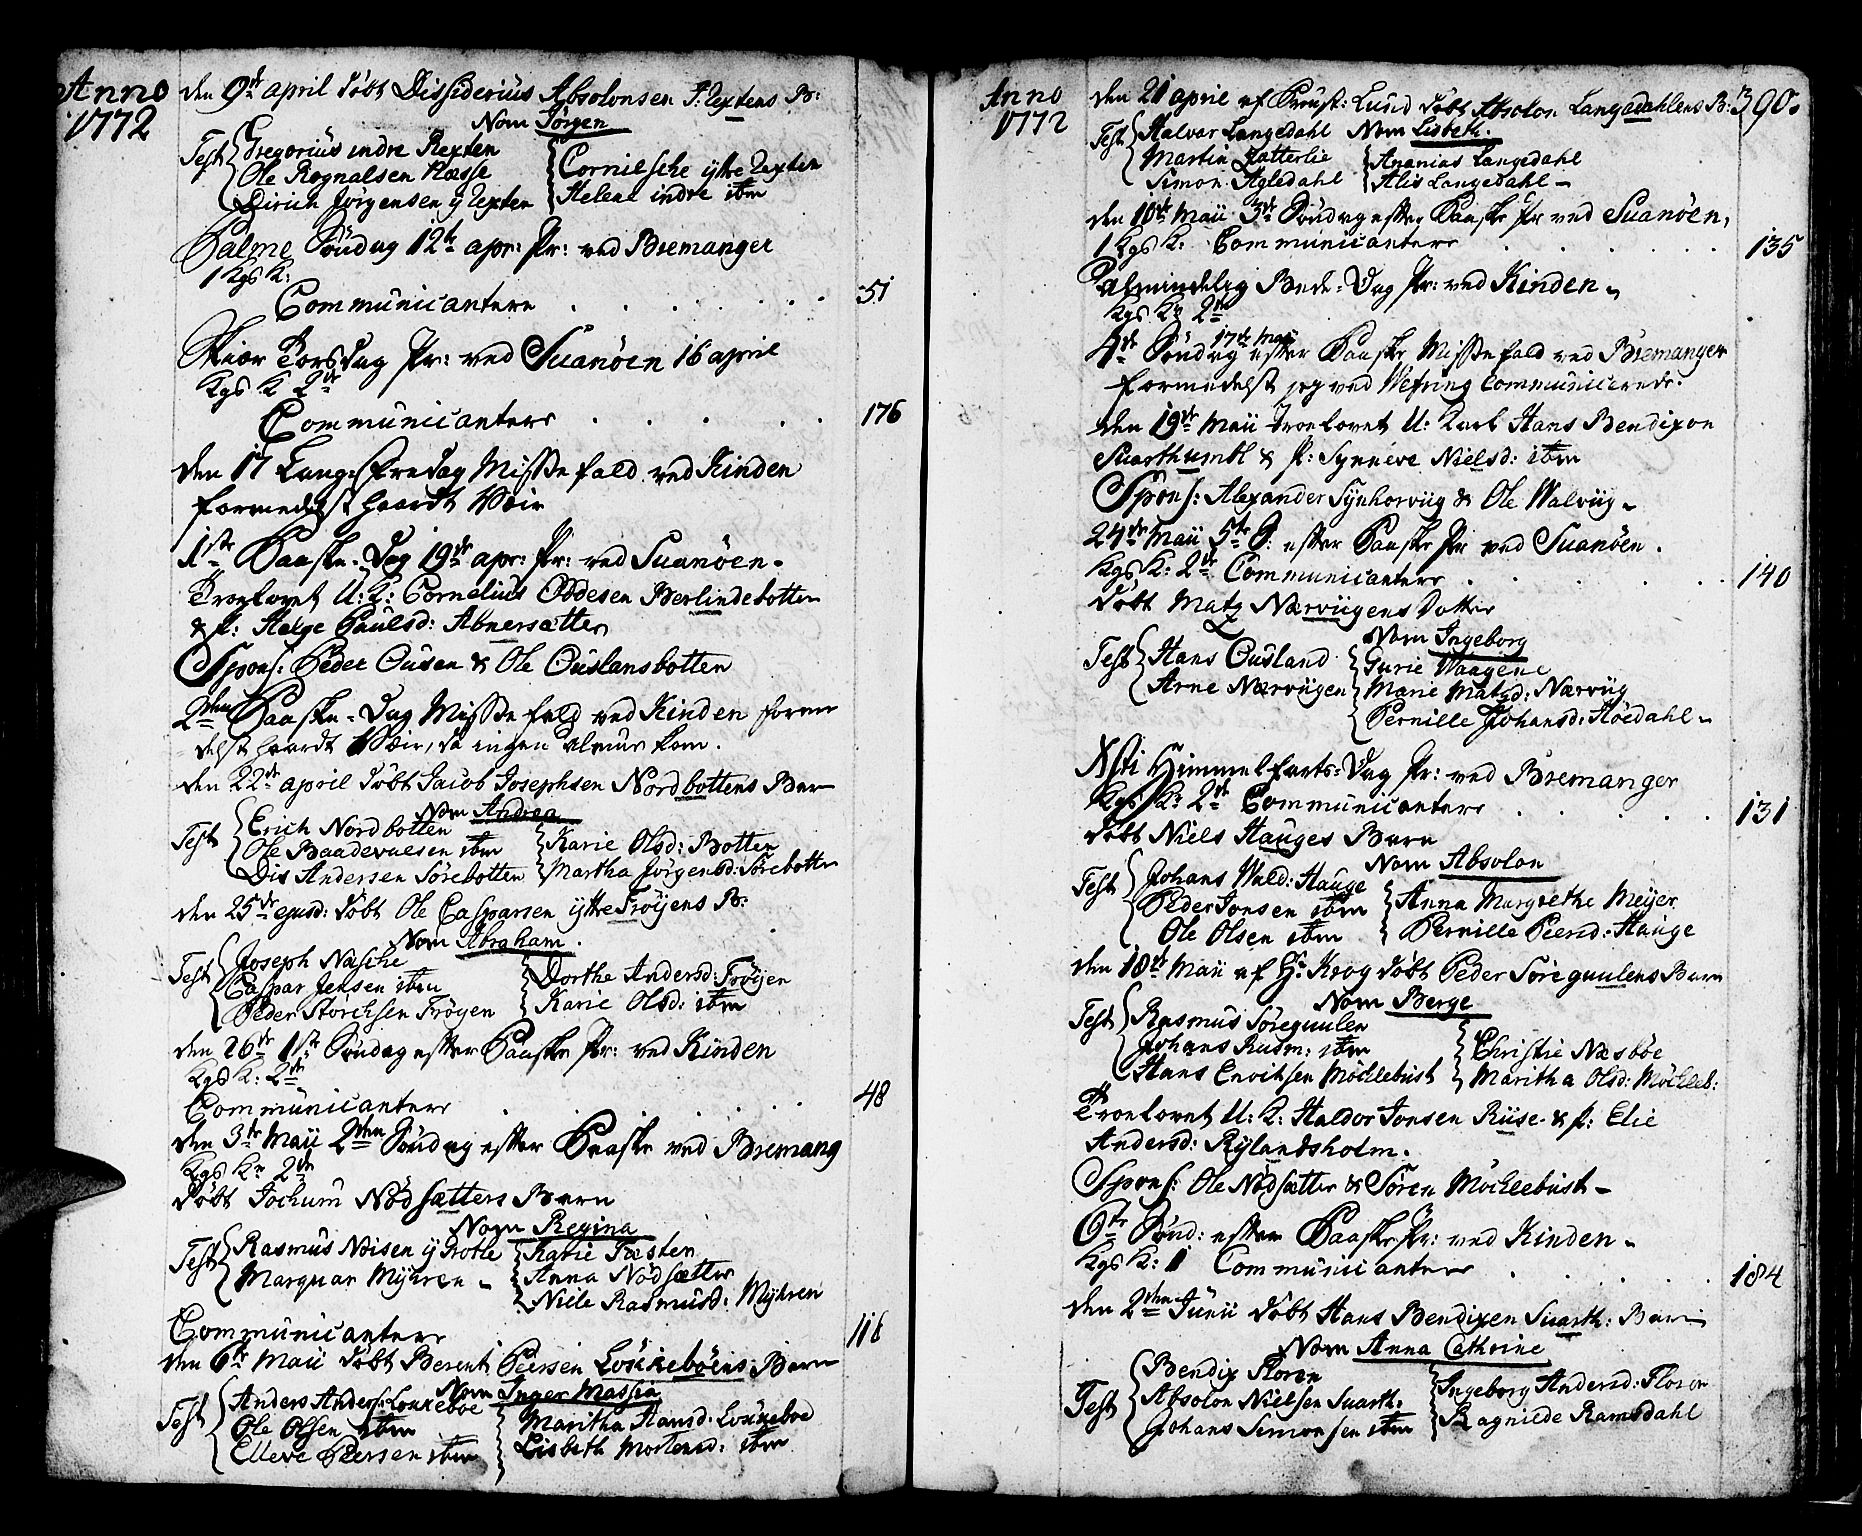 Anno 1772
den 9de april døbt Dissiderius Absolonsen I: Rextens B:
Nom Jørgen
Test Gregorius indre Rexten
Ole Rognalsen Næsse
Dirich Jørgensen y Rexten
Cornilsche ytre Rexten
Helene indre ibm
Palme Søndag 12te apr: Pr: ved Bremanger
1 Kgs K:
Communicantere 51
Skiær Torsdag Pr: ved Suanøen 16 april
Kgs K 2de
Communicanters 176
den 17 Lang: Fredag Missefald ved Kinden
formedelst haardt Væir
1ste Paaske-Dag 19de apr: Pr: ved Suanøen.
Troelovet U: K: Cornelius Oddesen Berlindebotten
& P: Helge Paulsd: Abnersætter
Spons: Peder Ousen & Ole Ouslansbotten
2den Paaske-Dag Missefald ved Kinden forme
delst haardt Væir, da ingen almue kom.
den 22de april døbt Jacob Josephsen Nordbottens Barn
Nom Andrea
Test Erich Nordbotten
Ole Baadevuesen ibm
Dis Andersen Sørebotten
Karie Olsd: Botten
Martha Jørgensd: Sørebotten
den 25de ejusd: døbt Ole Casparsen ytre Frøyens B:
Nom Abraham.
Test Joseph Nasche
Caspar Jensen ibm
Peder Storchsen Frøyen
Dorthe Andersd: Frøyen
Karie Olsd: ibm
den 26de 1ste Søndag efter Paaske Pr: ved Kinden
Kgs K: 2de
Communicanters 48
den 3die Maii 2den Søndag efter Paaske ved Bremang
Kgs K: 2de
døbt Jochum Nødsætters Barn
Nom Regina
Test Rasmus Nøisen y Grotle
Marquar Myhren
Karie Fæsten
Anna Nødsætter
Niele Rasmusd: Myhren
Communicanters 118
den 6te Maii døbt Berent Peersen Løkkebøens Barn
Nom Inger Massia
Test Anders Anders: Løkkeboe
Ole Olsen ibm
Elleve Peersen ibm
Maritha Hansd: Løkkeboe
Lisbeth Mortensd: ibm
Anno 1772
390.
den 21 april af Prust: Lund døbt Absolon Langedahlens B:
Nom Lisbeth.
Test Halvar Langedahl
Martin Fatterlie
Simon Agledahl
Ananias Langedahl
Alis Langedahl
den 10de Maii 3de Søndag efter Paaske Pr ved Suanøen,
1 Kgs K: Communicanters 135
Almindelig Bede-Dag Pr: ved Kinden
Kgs K: 2de
4de Søndag 17de Maii efter Paaske Missefald ved Bremanger
formedelst jeg ved Vefring communicerede.
den 19de Maii Troelovet U: Karl Hans Bendixen
Suarthumbl & P: Synneve Nielsd: ibm
Spons: Alexander Synhorviig & Ole Walviig
24de Maii 5te S: efter Paaske Pr ved Suanøen.
Kgs K: 2de Communicanters 140
døbt Matz Nærviigens Dotter
Nom Ingeborg
Test Hans Ousland
Arne Nærviigen
Gurie Waagene
Marie Matzd: Nærviig
Pernille Johansd: Høedahl
Xsti Himmelfarts-Dag Pr: ved Bremanger
Kgs K: 2de Communicanters 131
døbt Niels Hauges Barn
Nom Absolon
Test Johans Wald: Hauge
Peder Jonsen ibm
Ole Olsen ibm
Anna Margrethe Meyer
Pernille Peersd: Hauge
den 18de Maii af Hr Krog døbt Peder Søreguulens Barn
Nom Berge
Test Rasmus Søreguulen
Johans Rasm: ibm
Hans Enochsen Møchlebust
Christie Næsbøe
Maritha Olsd: Møchleb:
Troelovet U: K: Haldor Jonsen Riise & P: Elie
Andersd: Rylandsholm.
Spons: Ole Nødsætter & Søren Møchlebust
6te Sønd: efter Paaske Pr: ved Kinden
Kgs K: 1 Communicanters 184
den 2den Junii døbt Hans Bendixen Suarth: Barn
Nom Anna Cathrine
Test Bendix Floren
Absolon Nielsen Suarth:
Johans Simonsen ibm
Ingeborg Andersd: Floren
Ragnilde Ramsdahl